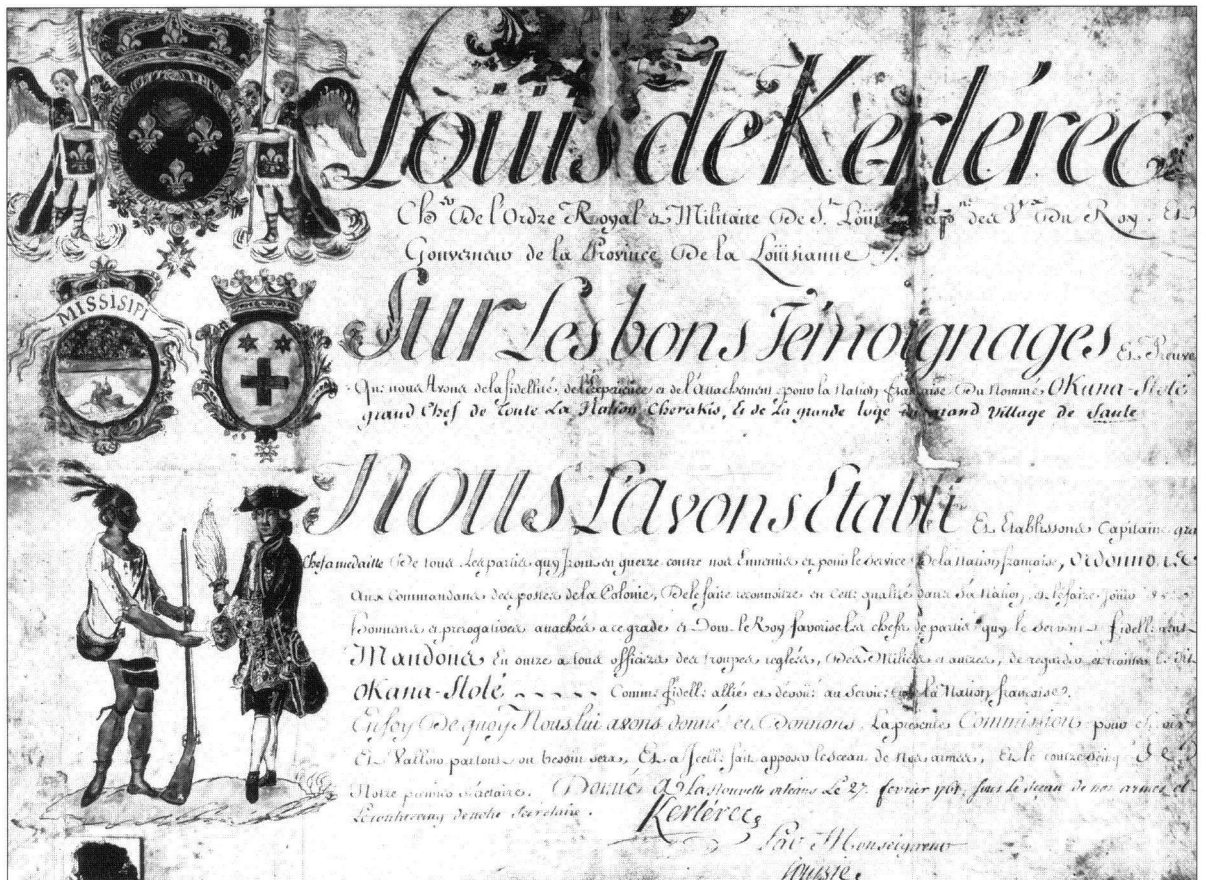 Loüis de Kerlérec
Ch.er De l'Ordre Royal et Militaire De S.t Loüis du Roy. Et
Gouverneur de la Province De la Loüisianne
MISSISIPI
Sur Les bons Témoignages Et Preuve
Que nous Avons de la fidellité, de l'expérience et de l'attachement pour la Nation française du Nommé OKana-Stoté
grand Chef de Toute La Nation Cherakis, Et de La grande loge du grand Village de Saute
Nous L'avons Etabli Et Etablissons Capitaine gra
Chef a medaille De tous Les partis quy front en guerre contre nos Ennemis et pour le service De la Nation française, Ordonnons
Aux Commandans des postes de la Colonie, De le faire reconnoitre en cette qualité dans Sa Nation, et le faire Jouir
honneurs et prerogatives attachés a ce grade et Dont le Roy favorise Les chefs de partis quy le servent fidellement
Mandons En outre a tous officiers des troupes reglées, Des Milices et autres, de regarder
OKana-Stoté Comme fidelle allié et devoué au Service de la Nation françoise.
En foy De quoy Nous lui avons donné et Donnons La presente Commission pour
Et Valloir partout ou besoin sera, Et a Jcelle fait apposer le sceau de Nos armes, Et le contre Seing
Notre premier secretaire. Donné A La Nouvelle orleans Le 27. fevrier 1761. sous le Sceau de nos armes et
Le contreseing de notre Secretaire.
Kerlérec
Par Monseigneur